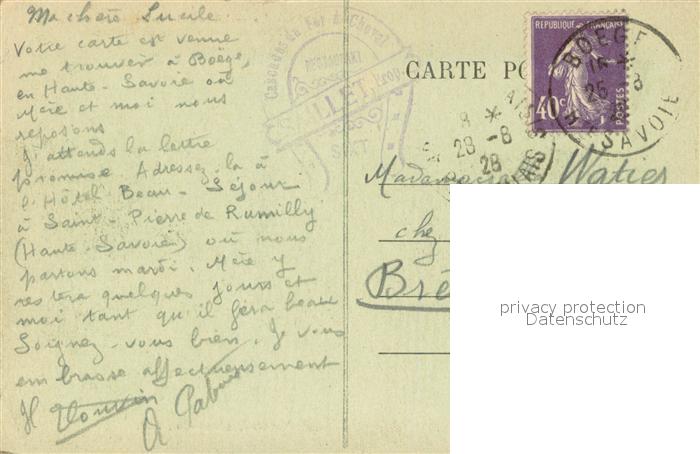 Ma chère Lucile.
Votre carte est venue
me trouver à Boëge,
en Haute-Savoie où
Mère et moi nous
reposons
J'attends la lettre
promise. Adressez-la à
l'Hôtel Beau-Séjour
à Saint-Pierre de Rumilly
(Haute-Savoie) où nous
partons mardi. Mère y
restera quelques jours et
moi tant qu'il fera beau
Soignez-vous bien. Je vous
embrasse affectueusement
Cascades du Fer à Cheval
RESTAURANT
SIXT
CARTE PO
REPUBLIQUE FRANÇAISE
40c
POSTES
BOËGE
26 8
HTE SAVOIE
8 *
28 -8
28
Watier
chez
Bré
privacy protection
Datenschutz